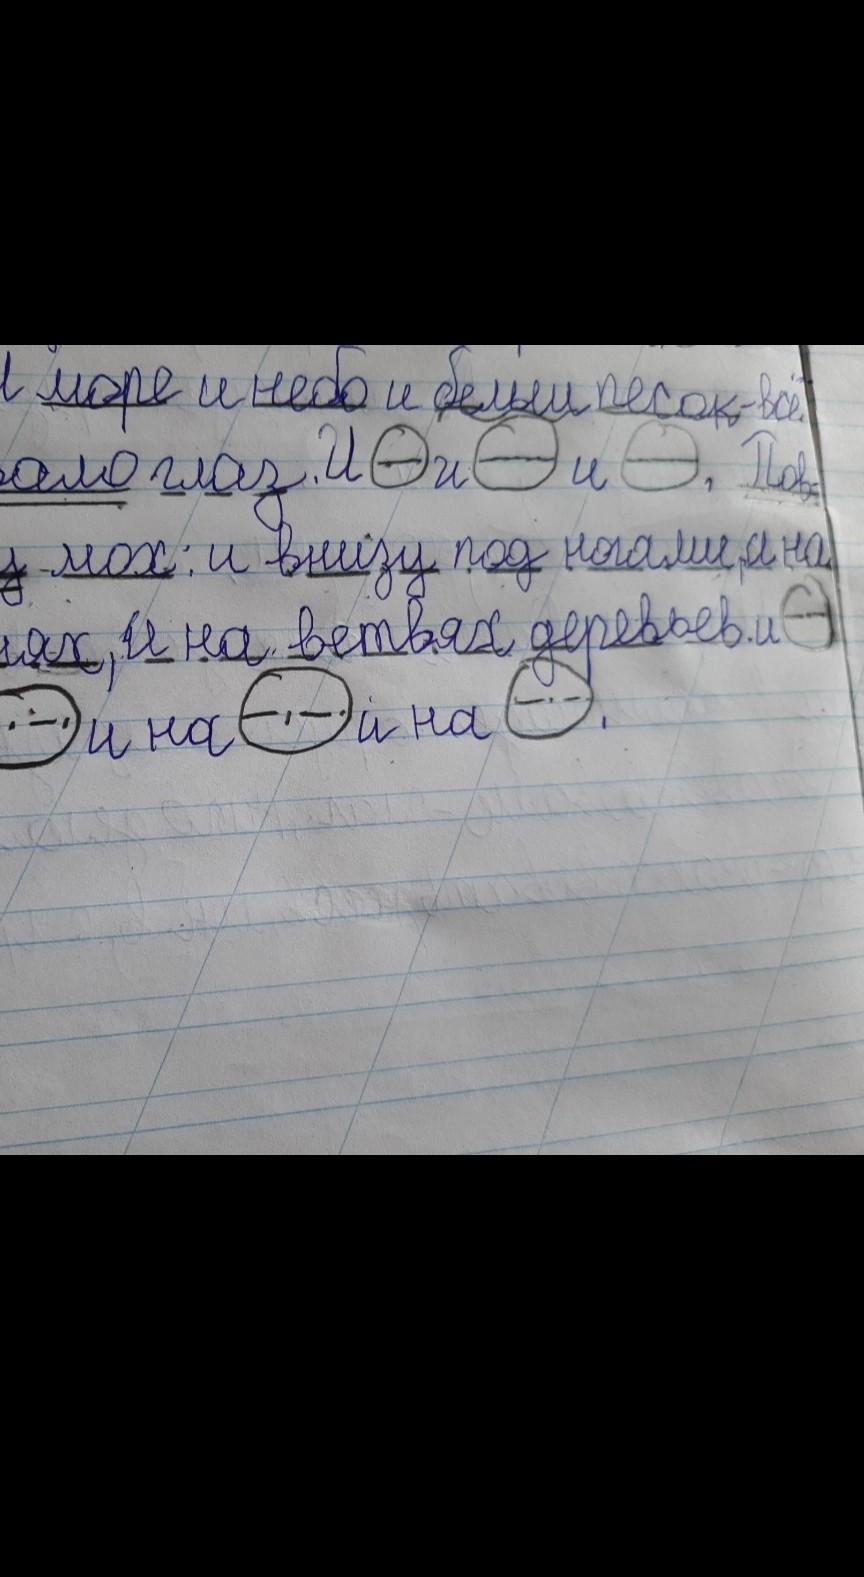 И море и небо и белый песок-всё
глаз. И и и . Пов-
у мох: и внизу под ногами, и на
ях, и на ветвях деревьев. и
и на и на .